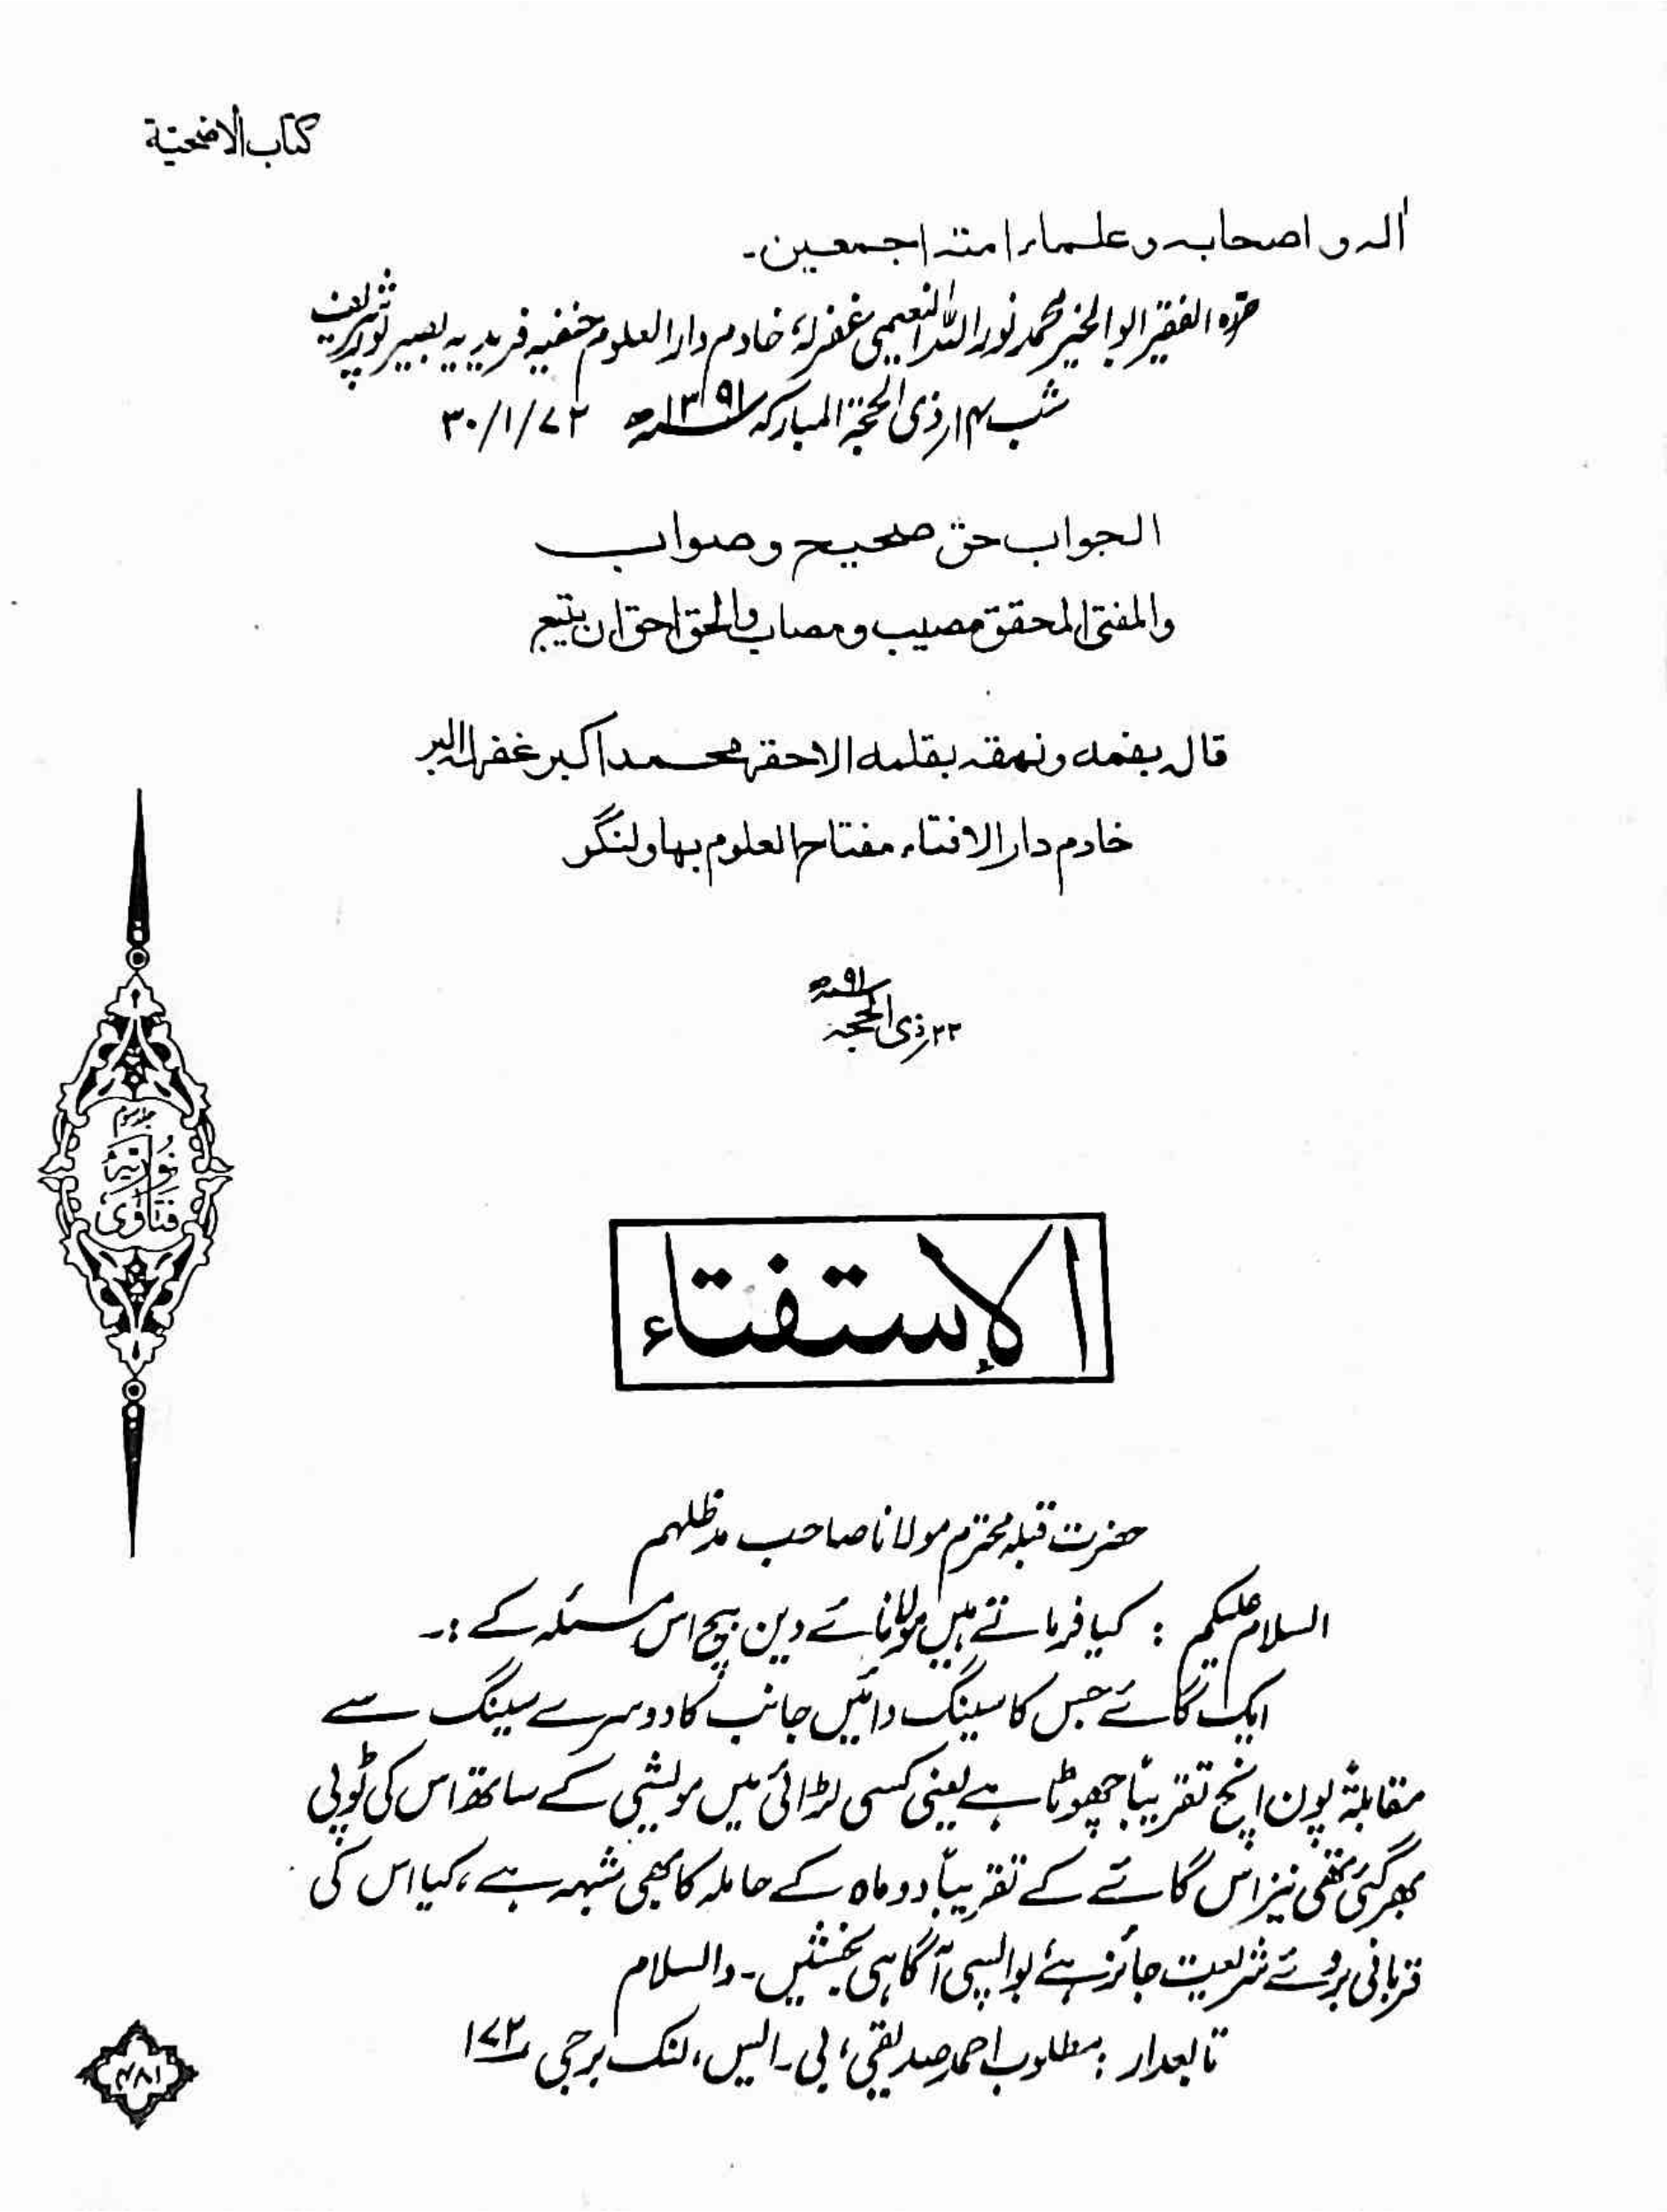 کتاب الاضحیّة
اٰلہ و اصحابہ و علماء امتہ اجمعین۔
حرّہ الفقیر ابو الخیر محمد نور اللہ النعیمی غفر لہٗ خادم دار العلوم حنفیہ فریدیہ بصیر پور شریف
شب ۱۴؍ ذی الحجۃ المبارکہ ۱۳۹۱ھ ۳۰/۱/۷۲
الجواب حق صحیح و صواب
والمفتی المحقق مصیب و مصاب والحق احق ان یتبع
قال بفمہ و نمقہ بقلمہ الاحقر محمد اکبر غفرلہ البر
خادم دار الافتاء مفتاح العلوم بہاولنگر
۲۲؍ ذی الحجہ ۹۱ھ
جلد سوم
فتاوی نوریہ
الإستفتاء
حضرت قبلہ محترم مولانا صاحب مدظلہم
السلام علیکم : کیا فرماتے ہیں مولانائے دین بیچ اس مسئلہ کے :۔
ایک گائے جس کا سینگ دائیں جانب کا دوسرے سینگ سے
مقابلۃً پون انچ تقریباً چھوٹا ہے یعنی کسی لڑائی میں مویشی کے ساتھ اس کی ٹوپی
بھر گئی تھی نیز اس گائے کے تقریباً دو ماہ کے حاملہ کا بھی شبہہ ہے، کیا اس کی
قربانی بروئے شریعت جائز ہے؟ بواپسی آگاہی بخشیں۔ والسلام
تابعدار : مطلوب احمد صدیقی، بی۔ ایس، لنک برجی ۱۷۲
۴۸۱